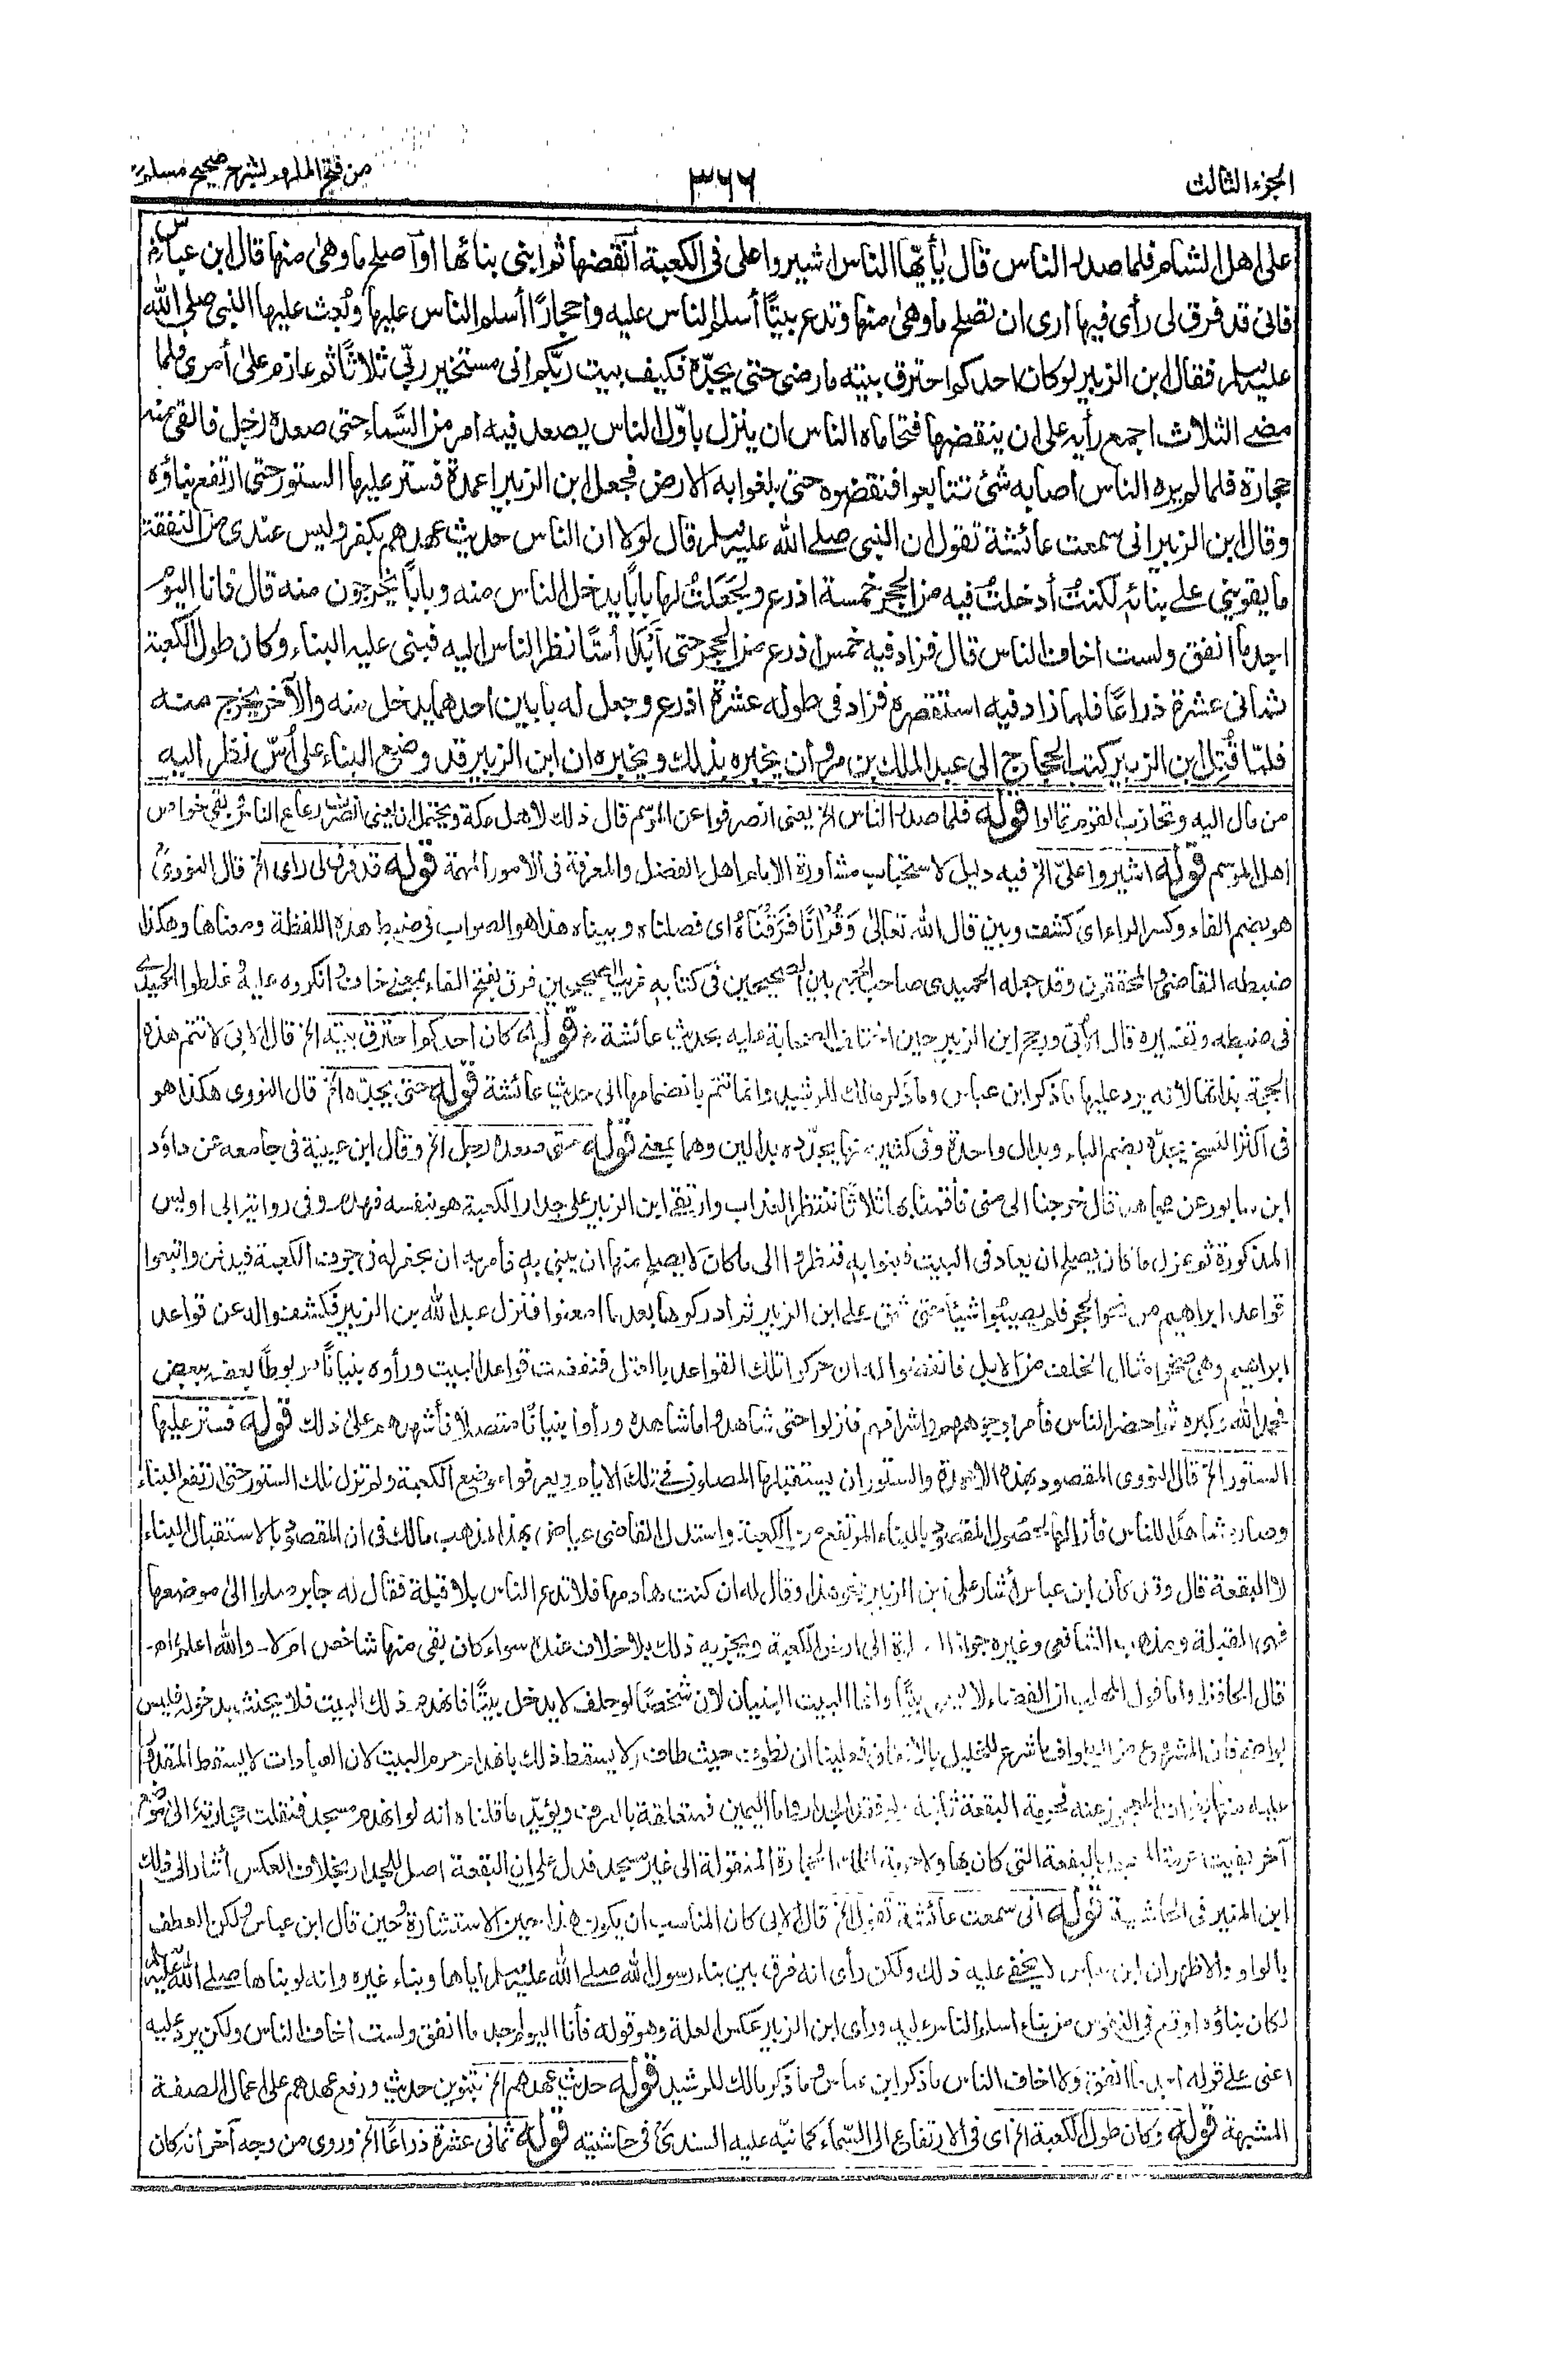 الجزء الثالث
٣٦٦
من فتح الملهم لشرح صحيح مسلم
على اهل الشام فلما صدر الناس قال يٰأيّها الناس اشيروا على فى الكعبة أنقضها ثم ابنى بنائها او أصلح ما وهىٰ منها قال ابن عباس
فانى قد فرق لى رأى فيها ارى ان تصلح ما وهىٰ منها وتدع بيتًا أسلم الناس عليه واحجارًا أسلم الناس عليها وبُعِث عليها النبى صلى الله
عليه وسلم فقال ابن الزبير لو كان احدكم احترق بيته ما رضى حتى يجدّه فكيف بيت ربّكم انى مستخير ربّى ثلاثًا ثم عازم علىٰ أمرى فلما
مضے الثلاث اجمع رأيه على ان ينقضها فتحاماه الناس ان ينزل باوّل الناس يصعد فيه امر من السَّماء حتى صعده رجل فالقى منه
حجارة فلما لم يره الناس اصابه شئ تتابعوا فنقضوه حتى بلغوا به الارض فجعل ابن الزبير اعمدة فستر عليها الستور حتى ارتفع بناؤه
وقال ابن الزبير انى سمعت عائشة تقول ان النبى صلے الله عليه وسلم قال لولا ان الناس حديث عهدهم بكفر وليس عندى من النفقة
ما يقوينى علے بنائه لكنتُ أدخلتُ فيه من الحجر خمسة اذرع ولجَعَلتُ لها بابًا يدخل الناس منه وبابًا يخرجون منه قال فانا اليوم
اجد ما انفق ولست اخاف الناس قال فزاد فيه خمس اذرع من الحجر حتى أبدىٰ أسًّا نظر الناس اليه فبنى عليه البناء وكان طول الكعبة
ثمانى عشرة ذراعًا فلما زاد فيه استقصره فزاد فى طوله عشرة اذرع وجعل له بابين احدهما يدخل منه والآخر يخرج منه
فلمّا قُتِل ابن الزبير كتب الحجاج الى عبد الملك بن مروان يخبره بذلك ويخبره ان ابن الزبير قد وضع البناء على أُسّ نظر اليه
من مال اليه وتحازب القوم تمالوا قوله فلما صدر الناس الخ يعنى انصرفوا عن الموسم قال ذلك لاهل مكة ويحتمل ان يعنى انصرف رعاع الناس وبقى خواص
اهل الموسم قوله اشيروا علىّ الخ فيه دليل لاستحباب مشاورة الامام اهل الفضل والمعرفة فى الامور المهمة قوله قد فرق لى رأى الخ قال النووىؒ
هو بضم الفاء وكسر الراء اى كشف وبين قال الله تعالىٰ وَقُرْاٰنًا فَرَقْنَاهُ اى فصلناه وبيناه هذا هو الصواب فى ضبط هذه اللفظة ومعناها وهكذا
ضبطه القاضى والمحققون وقد جعله الحميدى صاحب الجمع بين الصحيحين فى كتابه غريب الصحيحين فرق بفتح الفاء بمعنے خاف وانكروه عليه وغلطوا الحميدى
فى ضبطه وتفسيره قال الأبّى ورجع ابن الزبير حين الصحابة عليه بحديث عائشة رض قوله لو كان احدكم احترق بيته الخ قال الابى لا تتم هذه
الحجة بذاتها لأنه يرد عليها ما ذكر ابن عباس وما ذكر مالك للرشيد وانما تتم بانضمامها الى حديث عائشة قوله حتى يجدّه الخ قال النووى هكذا هو
فى اكثر النسخ يجدّه بضم الياء وبدال واحدة وفى كثير منها يجدّده بدالين وهما بمعنے قوله حتى صعده رجل الخ وقال ابن عيينة فى جامعه عن داؤد
ابن سابور عن مجاهد قال خرجنا الى منى فأقمنا بها ثلاثًا ننتظر العذاب وارتقى ابن الزبير على جدار الكعبة هو بنفسه فهدم وفى رواية ابى اويس
المذكورة ثم عزل ما كان يصلح ان يعاد فى البيت فبنوا به فنظروا الى ما كان لا يصلح منها ان يبنى به فأمر به ان يحفر له فى جوف الكعبة فيدفن واتبعوا
قواعد ابراهيم من نحو الحجر فلم يصيبوا شيئًا حتى شق على ابن الزبير ثم ادركوها بعد ما امعنوا فنزل عبد الله بن الزبير فكشفوا له عن قواعد
ابراهيم وهى صخر امثال الخلف من الابل فانفضوا له ان حركوا تلك القواعد بالعتل فنفضت قواعد البيت ورأوه بنيانًا مربوطًا بعضه ببعض
فحمد الله وكبره ثم احضر الناس فأمر بوجوههم واشرافهم فنزلوا حتى شاهدوا ما شاهده ورأوا بنيانًا متصلًا فأشهدهم علىٰ ذلك قوله فستر عليها
الستور الخ قال النووى المقصود بهذه الاعمدة والستور ان يستقبلها المصلون فى تلك الايام ويعرفوا موضع الكعبة ولم تزل تلك الستور حتى ارتفع البناء
وصار مشاهدًا للناس فأزالها لحصول المقصود بالبناء المرتفع من الكعبة واستدل القاضى عياض بهذا لمذهب مالك فى ان المقصود بالاستقبال البناء
لا البقعة قال وقد كان ابن عباس أشار على ابن الزبير بنحو هذا وقال له ان كنت هادمها فلا تدع الناس بلا قبلة فقال له جابر صلوا الىٰ موضعها
فهى القبلة ومذهب الشافعى وغيره جواز الى ارض الكعبة ويجزيه ذلك بلا خلاف عنده سواء كان بقى منها شاخص ام لا والله اعلم اهـ
قال الحافظ واما قول المهلب ان الفضاء لا يسمى بيتًا وانما البيت البنيان لان شخصًا لو حلف لا يدخل بيتًا فانهدم ذلك البيت فلا يحنث بدخوله فليس
بواضح فان المشروع من الطواف ما شرع للخليل بالاتفاق فعلينا ان نطوف حيث طاف ولا يسقط ذلك بانهدام حرم البيت لان العبادات لا يسقط المقدور
عليه منها بفوات المعجوز عنه فحرمة البقعة ثابتة ولو فقد الجدار واما اليمين فمتعلقة بالعرف ويؤيّد ما قلناه انه لو انهدم مسجد فنقلت حجارته الى موضع
آخر بقيت حرمة المسجد بالبقعة التى كان بها ولا حرمة لتلك الحجارة المنقولة الى غير مسجد فدل على ان البقعة اصل للجدار بخلاف العكس أشار الى ذلك
ابن المنير فى الحاشية قوله انى سمعت عائشة تقول الخ قال الابى كان المناسب ان يكون هذا حين الاستشارة وحين قال ابن عباس ولكن العطف
بالواو والاظهر ان ابن عباس لا يخفے عليه ذلك ولكن رأى انه فرق بين بناء رسول الله صلے الله عليه وسلم اياها وبناء غيره وانه لو بناها صلے الله عليه
لكان بناؤه اوقع فى النفوس من بناء اسلم الناس عليه ورأى ابن الزبير عكس العلة وهو قوله فأنا اليوم اجد ما انفق ولست اخاف الناس ولكن يرد عليه
اعنى علے قوله اجد ما انفق ولا اخاف الناس ما ذكر ابن عباس وما ذكر مالك للرشيد قوله حديث عهدهم الخ بتنوين حديث ورفع عهدهم على اعمال الصفة
المشبهة قوله وكان طول الكعبة الخ اى فى الارتفاع الى السّماء كما نبّه عليه السندىؒ فى حاشيته قوله ثمانى عشرة ذراعًا الخ وروى من وجه آخر انه كان